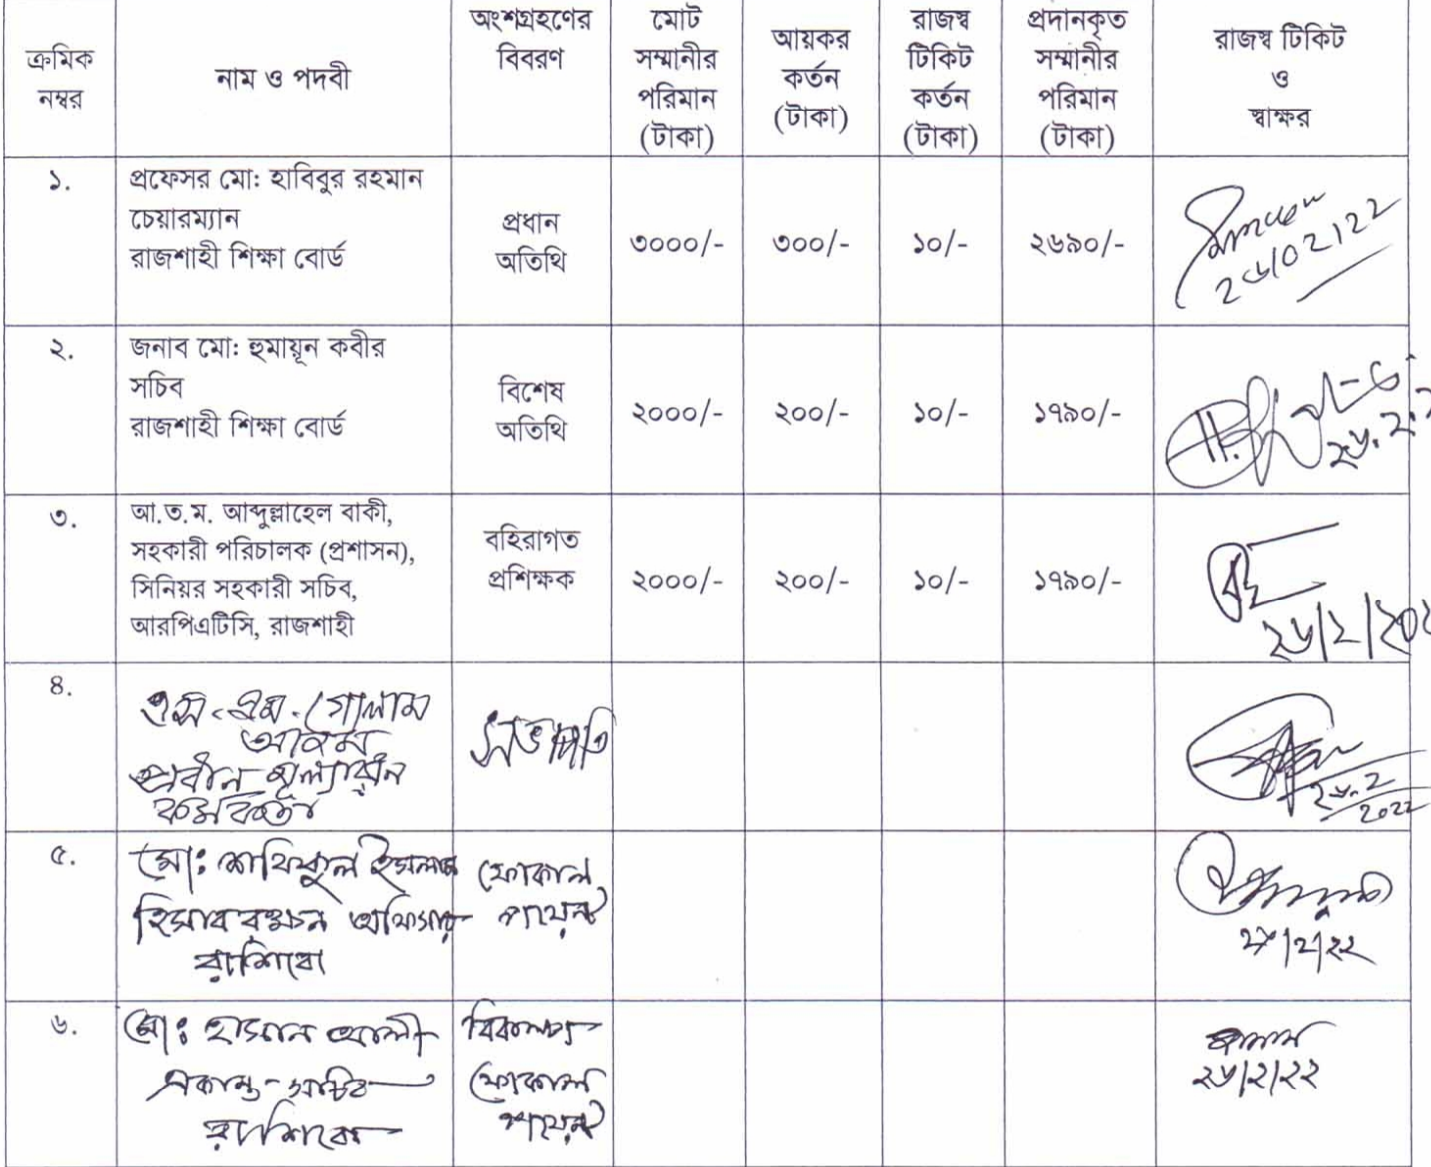 ক্রমিক
নম্বর
নাম ও পদবী
অংশগ্রহণের
বিবরণ
মোট
সম্মানীর
পরিমান
(টাকা)
আয়কর
কর্তন
(টাকা)
রাজস্ব
টিকিট
কর্তন
(টাকা)
প্রদানকৃত
সম্মানীর
পরিমান
(টাকা)
রাজস্ব টিকিট
ও
স্বাক্ষর
১.
প্রফেসর মো: হাবিবুর রহমান
চেয়ারম্যান
রাজশাহী শিক্ষা বোর্ড
প্রধান
অতিথি
৩০০০/-
৩০০/-
১০/-
২৬৯০/-
২৬/02/22
২.
জনাব মো: হুমায়ূন কবীর
সচিব
রাজশাহী শিক্ষা বোর্ড
বিশেষ
অতিথি
২০০০/-
২০০/-
১০/-
১৭৯০/-
৩.
আ.ত.ম. আব্দুল্লাহেল বাকী,
সহকারী পরিচালক (প্রশাসন),
সিনিয়র সহকারী সচিব,
আরপিএটিসি, রাজশাহী
বহিরাগত
প্রশিক্ষক
২০০০/-
২০০/-
১০/-
১৭৯০/-
৪.
এস. এম. গোলাম
আজম
মূল্যায়ন
কর্মকর্তা
সভাপতি
২৬.2
2022
৫.
মো: শফিকুল ইসলাম
হিসাব রক্ষন অফিসার
রাশিবো
ফোকাল
পয়েন্ট
৬.
মো: হাসান আলী
একান্ত সচিব
রাশিবো
বিকল্প
ফোকাল
পয়েন্ট
২৬/২/২২